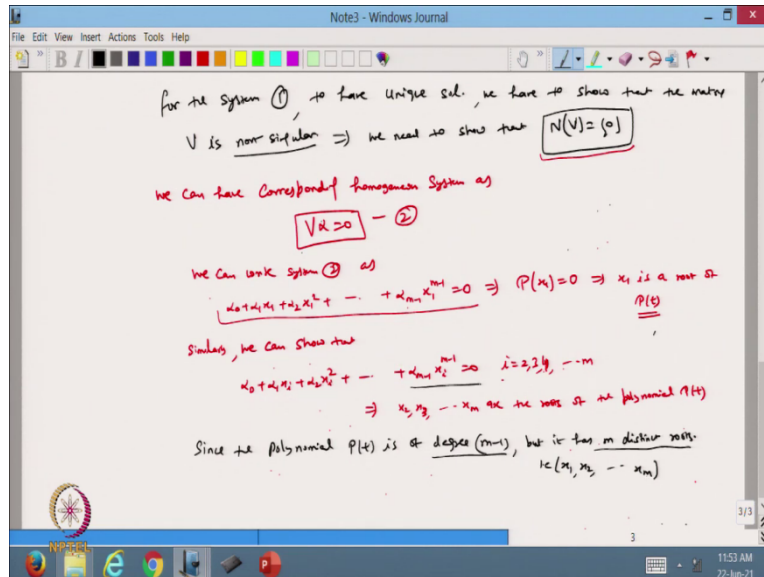 Note3 - Windows Journal
File Edit View Insert Actions Tools Help
for the system ①, to have unique sol. we have to show that the matrix
V is non singular ⇒ we need to show that N(V)={0}
we can have corresponding homogeneous system as
Vα=0 - ②
we can write system ② as
α₀+α₁x₁+α₂x₁²+ --- +αₘ₋₁x₁ᵐ⁻¹=0 ⇒ P(x₁)=0 ⇒ x₁ is a root of
P(t)
Similarly, we can show that
α₀+α₁xᵢ+α₂xᵢ²+ --- +αₘ₋₁xᵢᵐ⁻¹=0 i=2,3,4, ---m
⇒ x₂, x₃, --- xₘ are the roots of the polynomial P(t)
Since the polynomial P(t) is of degree (m-1), but it has m distinct roots.
ie (x₁, x₂, --- xₘ)
3/3
3
NPTEL
11:53 AM
22-Jun-21